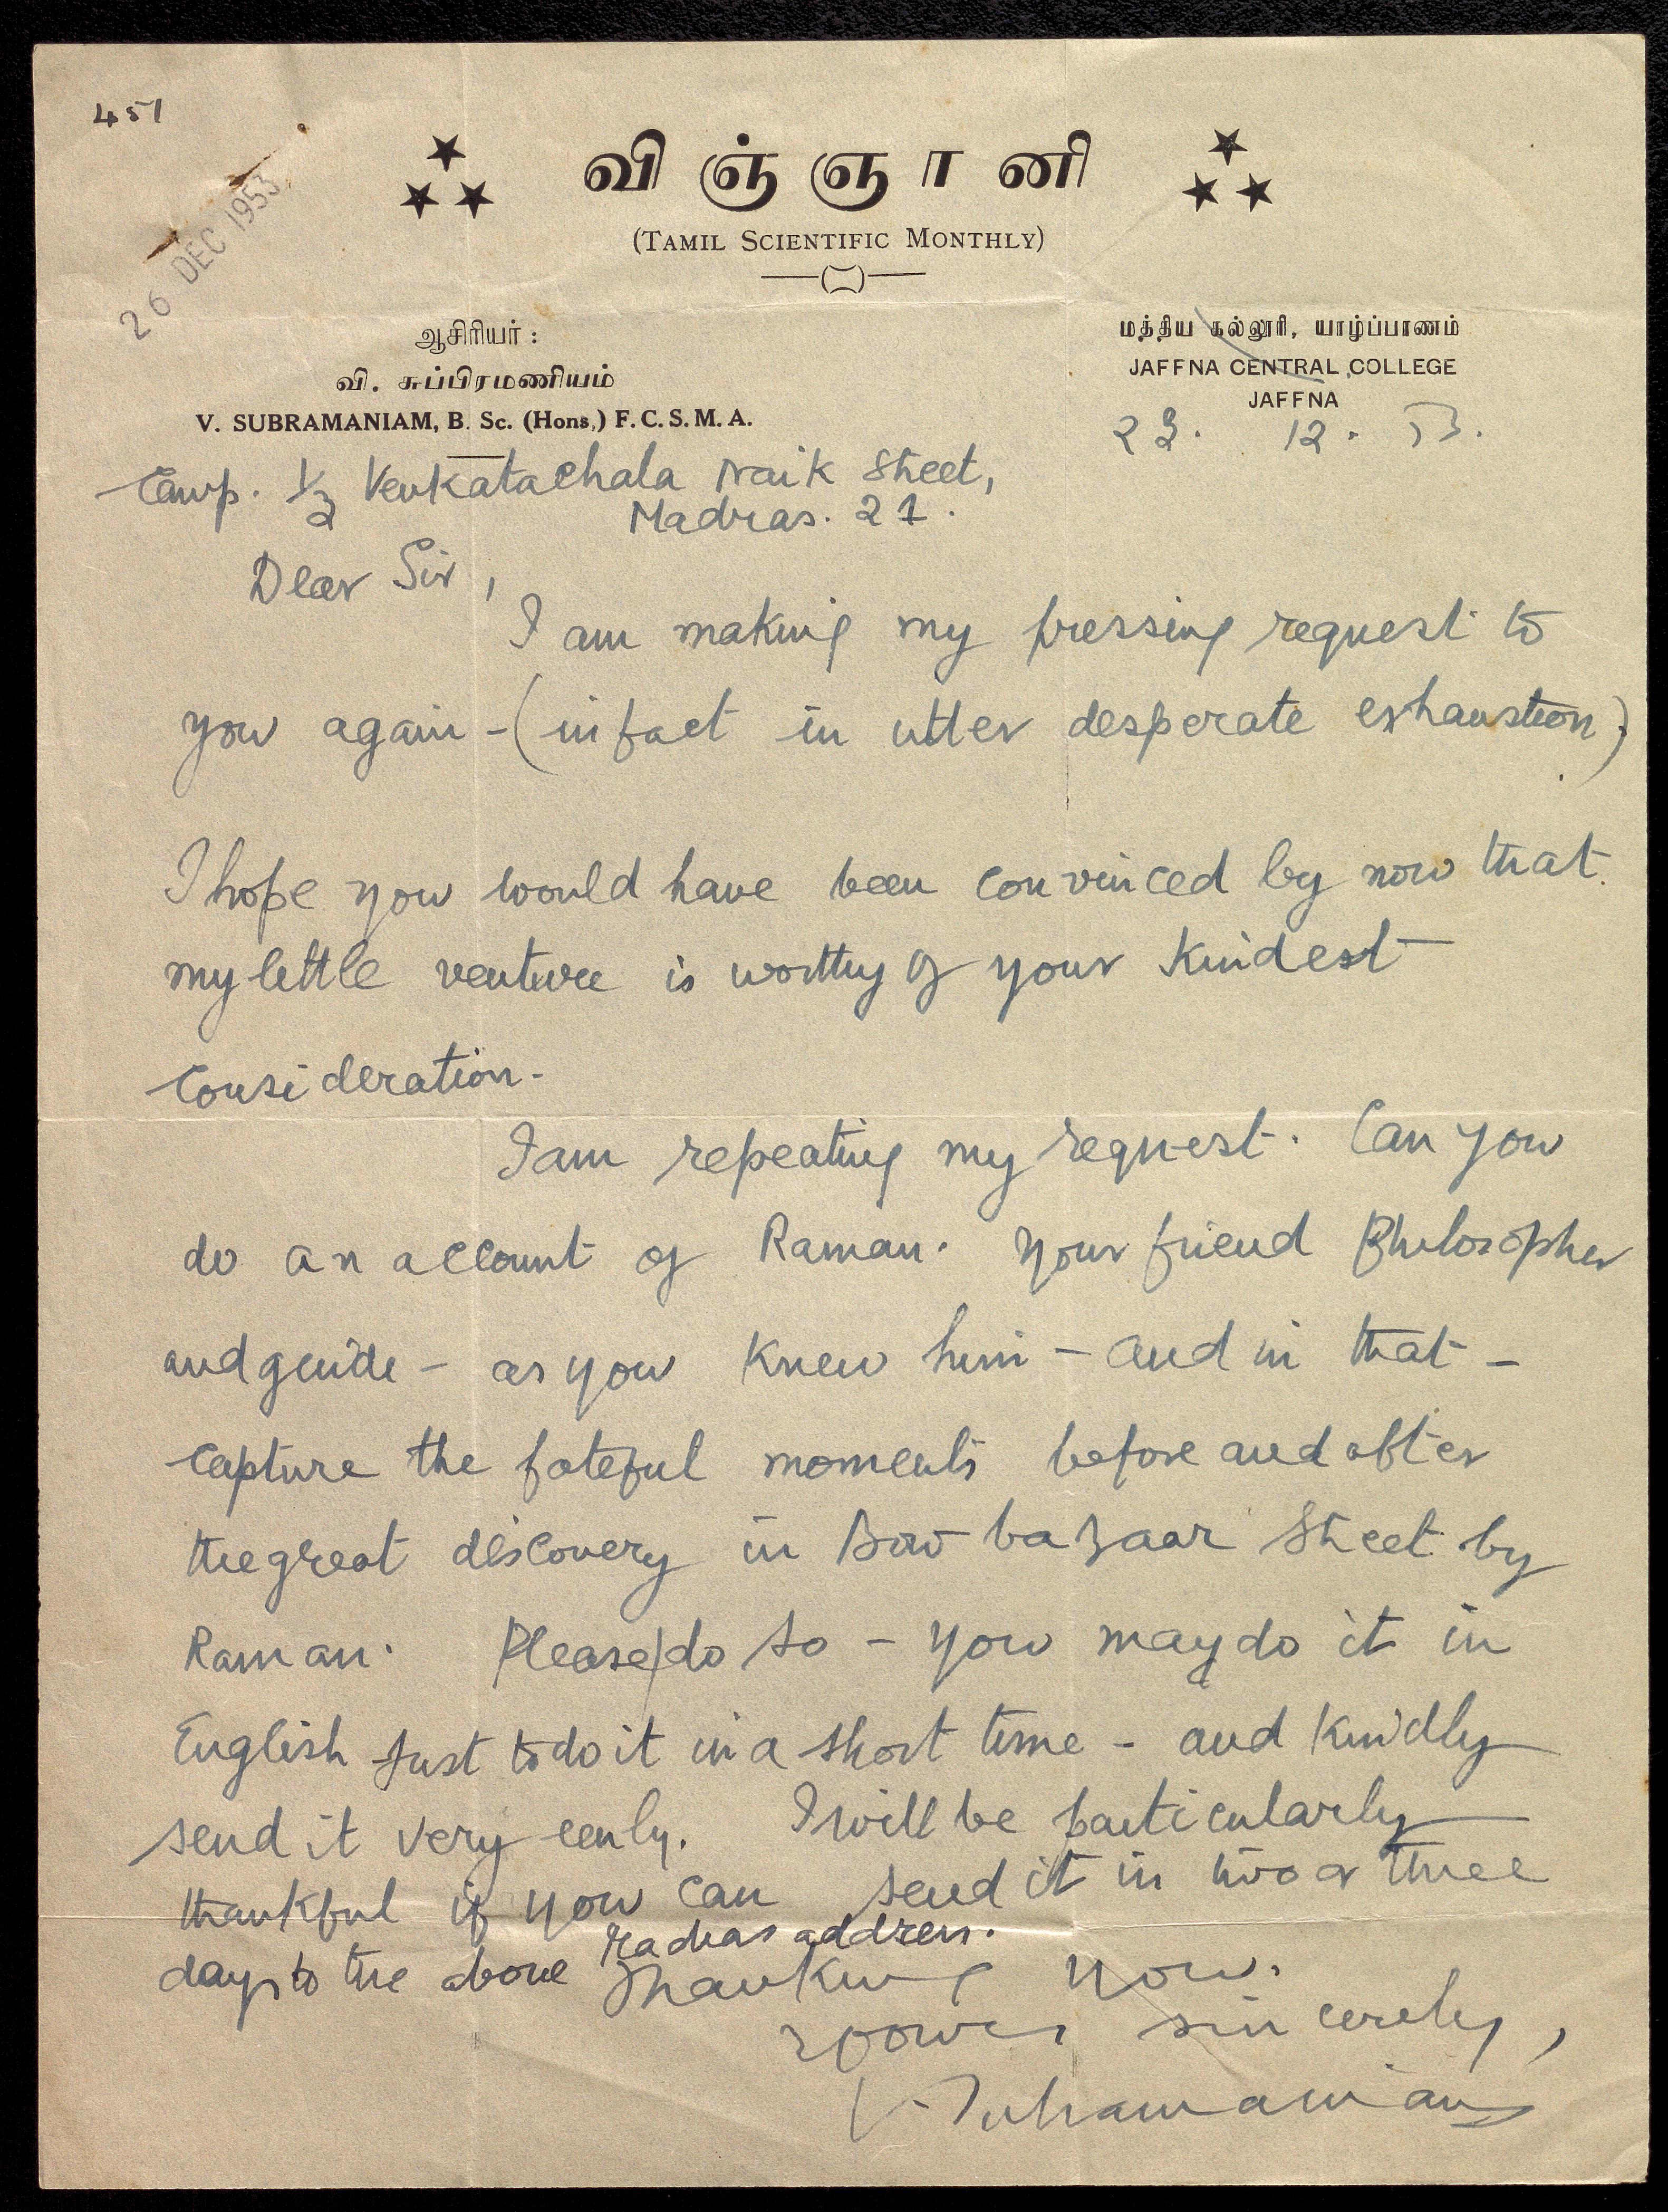 451
26 DEC 1953
விஞ்ஞானி
(TAMIL SCIENTIFIC MONTHLY)
ஆசிரியர் :
வி. சுப்பிரமணியம்
V. SUBRAMANIAM, B. Sc. (Hons,) F. C. S. M. A.
மத்திய கல்லூரி, யாழ்ப்பாணம்
JAFFNA CENTRAL COLLEGE
JAFFNA
23. 12. 53.
Camp. 1/2 Venkatachala Naik Street,
Madras. 21.
Dear Sir,
I am making my pressing request to
you again - (infact in utter desperate exhaustion)
I hope you would have been convinced by now that
my little venture is worthy of your kindest
consideration.
I am repeating my request. Can you
do an account of Raman. your friend Philosopher
and guide - as you knew him - and in that -
capture the fateful moments before and after
the great discovery in Bow bazaar Street by
Raman. Please do so - you may do it in
English just to do it in a short time - and kindly
send it very early. I will be particularly
thankful if you can send it in two or three
days to the above Madras address.
Thanking you.
yours sincerely,
V. Subramaniam